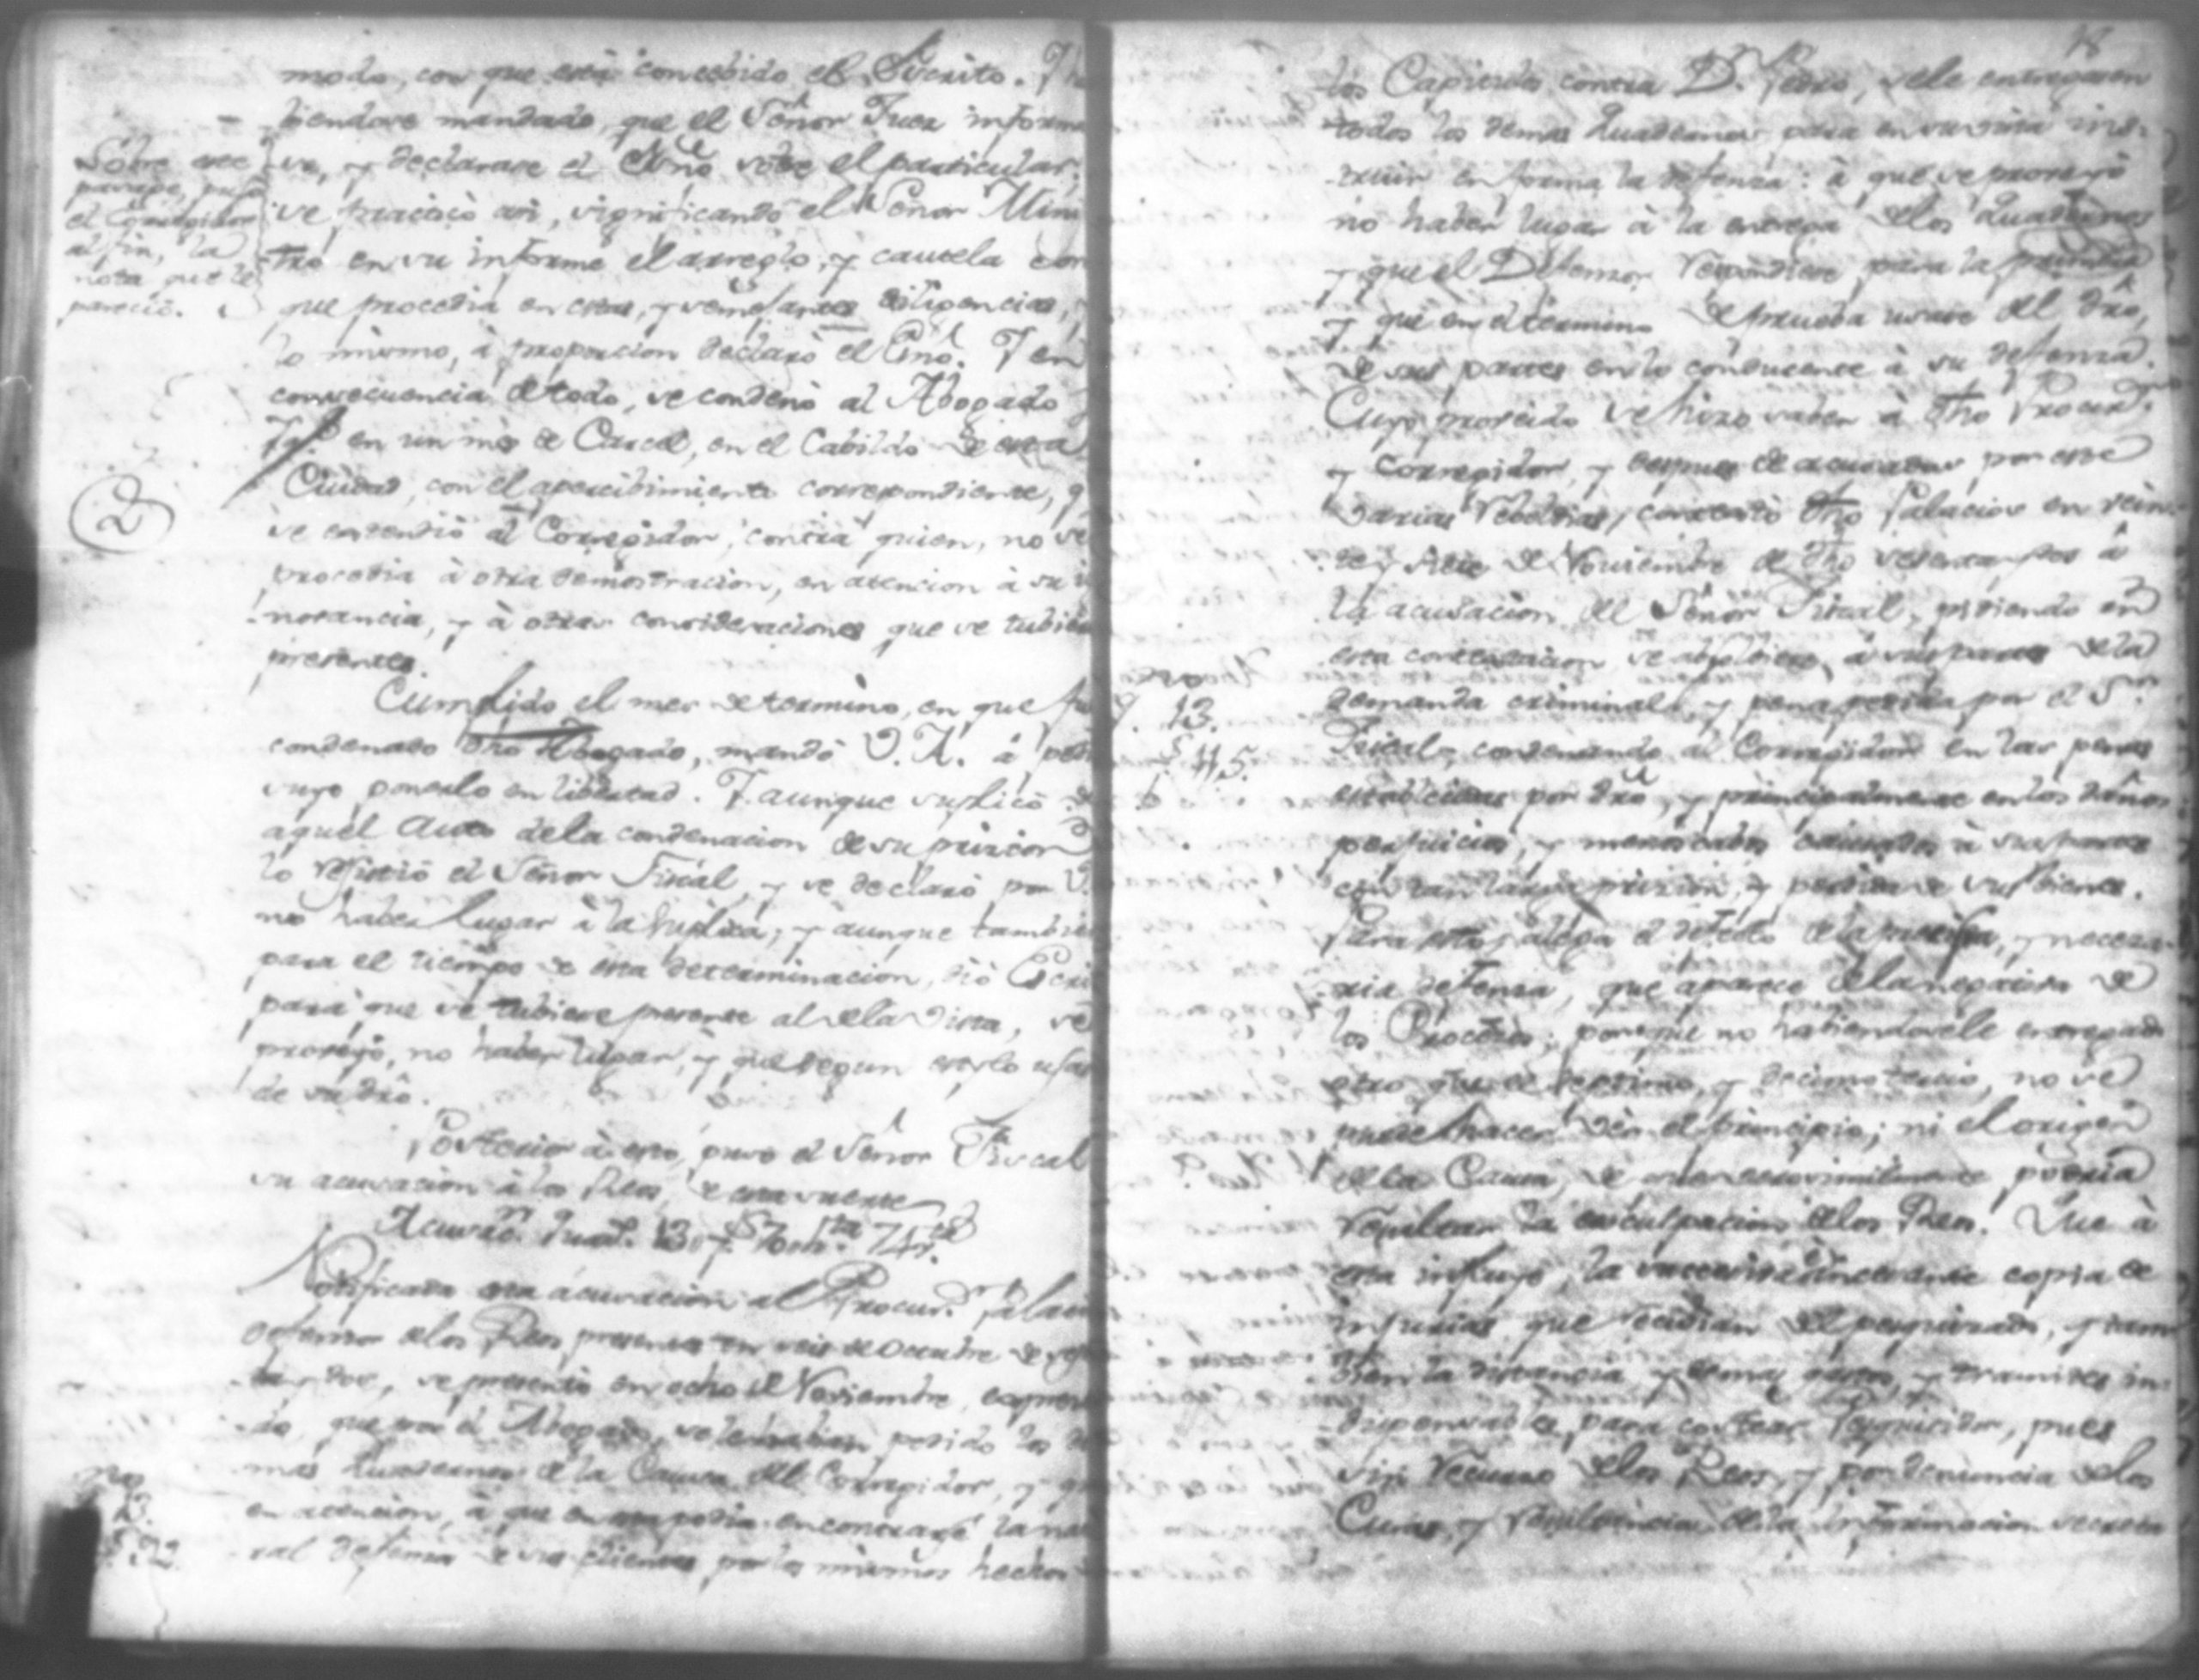 modo, con que está concebido el Escrito. Y ha
biendose mandado, que el Señor Juez informa
se, y declarase el Esno sobre el particular,
se practicó asi, significando el Señor Minis
tro en su informe el arreglo, y cautela con
que procedia en estas, y semejantes diligencias, y
lo mismo, á proporcion declaró el Esno. Y en
consecuencia de todo, se condenó al Abogado
en un mes de Carcel, en el Cabildo de esta
Ciudad, con el apercibimiento correspondiente, q
se extendió al Corregidor, contra quien, no se
procedia á otra demostracion, en atencion á su ig
norancia, y á otras consideraciones que se tubieron
presentes.
Sobre este
pasage, puso
el Corregidor
al fin, la
nota que le
pareció.
2
Cumplido el mes de termino, en que fue
condenado dho Abogado, mandó V. A. á pedim
suyo ponerlo en libertad. Y aunque suplicó de
aquel Auto de la condenacion de su prision
lo resistió el Señor Fiscal, y se declaró por V.
no haber lugar á la suplica; y aunque tambien
para el tiempo de esta determinacion, dió Escri
para que se tubiese presente al de la Vista, se
proveyó, no haber lugar, y que segun estylo usase
de su dro.
Posterior á esto, puso el Señor Fiscal
su acusacion á los Reos, de esta suerte
Acusn. Quad. 13. f.
Notificada esta acusacion al Procur. Palacios
defensor de los Reos presentes en seis de Octubre de sesen
ta y dos, se presentó en ocho de Noviembre, exponien
do, que por el Abogado, se le habian pedido los de
mas Quadernos de la Causa del Corregidor, y que
en atencion, á que en esta podia encontrarse la natu
ral defensa de sus clientes, por los mismos hechos
13.
18
los Capitulos contra D. Pedro, se le entregasen
todos los demas Quadernos para en su vista ins-
truir en forma la defensa: á que se proveyó
no haber lugar á la entrega de los Quadernos
y que el Defensor respondiese para la primera
y que en el termino de prueba usase del dro,
de sus partes en lo conducente á su defensa.
Cuyo proveido se hizo saber á dho Procur.
y Corregidor, y despues de acusadas por este
varias rebeldias, contextó dho Palacios en vein-
te y siete de Noviembre de dho sesenta y dos á
la acusacion del Señor Fiscal, pidiendo en
esta contextacion se absolbiese á sus partes de la
demanda criminal, y pena pedida por el Sr.
Fiscal, condenando al Corregidor en las penas
establecidas por dro, y principalmente en los daños
perjuicios, y menoscabos causados á sus partes
con tan larga prision, y perdida de sus bienes.
Para esto, alega el defecto de la precisa, y necesa-
ria defensa, que aparece de la negativa de
los Procesos; porque no habiendosele entregado
otro que el septimo, y decimo tercio, no se
puede hacer ver el principio; ni el origen
de la Causa, de que verosimilmente podria
resultar la exculpacion de los Reos. Que á
esta influyó, la copia de
injurias que recibian del pesquisado, y tam
bien la distancia, y demas gastos, y tramites in-
dispensables para costear Pesquisidor, pues
sin recurso de los Reos, y por denuncia de los
Curas, y resultancia de la informacion secreta
13.
f. 115.